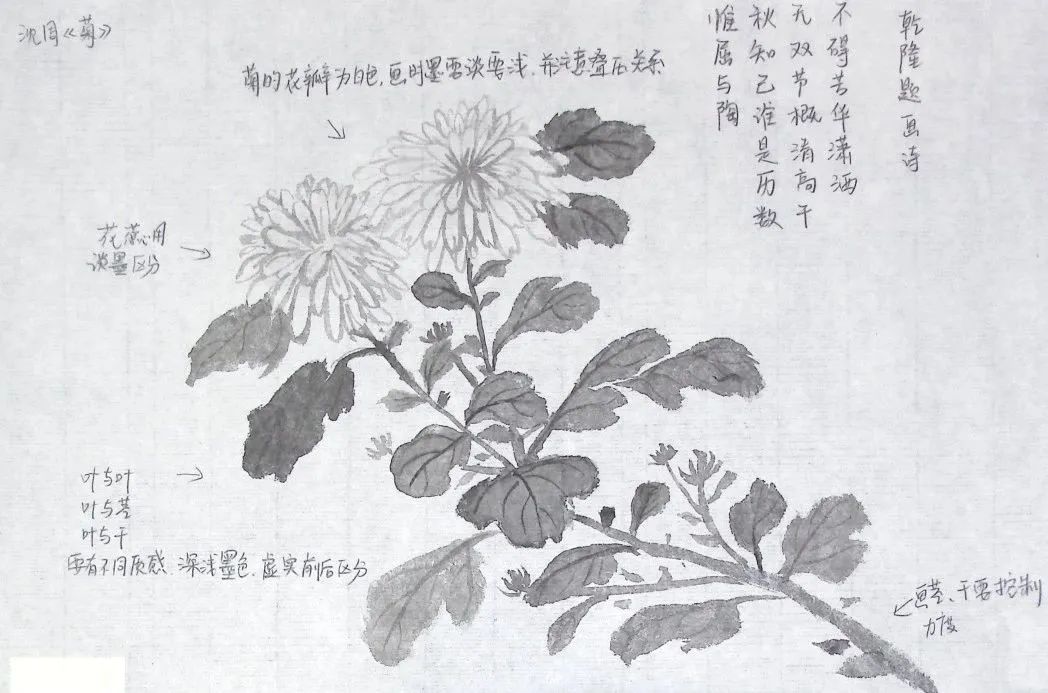 沈周《菊》
菊的花瓣为白色，画时墨要淡要浅，并注意叠压关系
乾隆题画诗
不碍苦华潇洒
无双节概清高千
秋知己谁是历数
惟屈与陶
花蕊心用
淡墨区分
叶与叶
叶与茎
叶与干
要有不同质感、深浅墨色、虚实前后区分
画茎、干要控制
力度